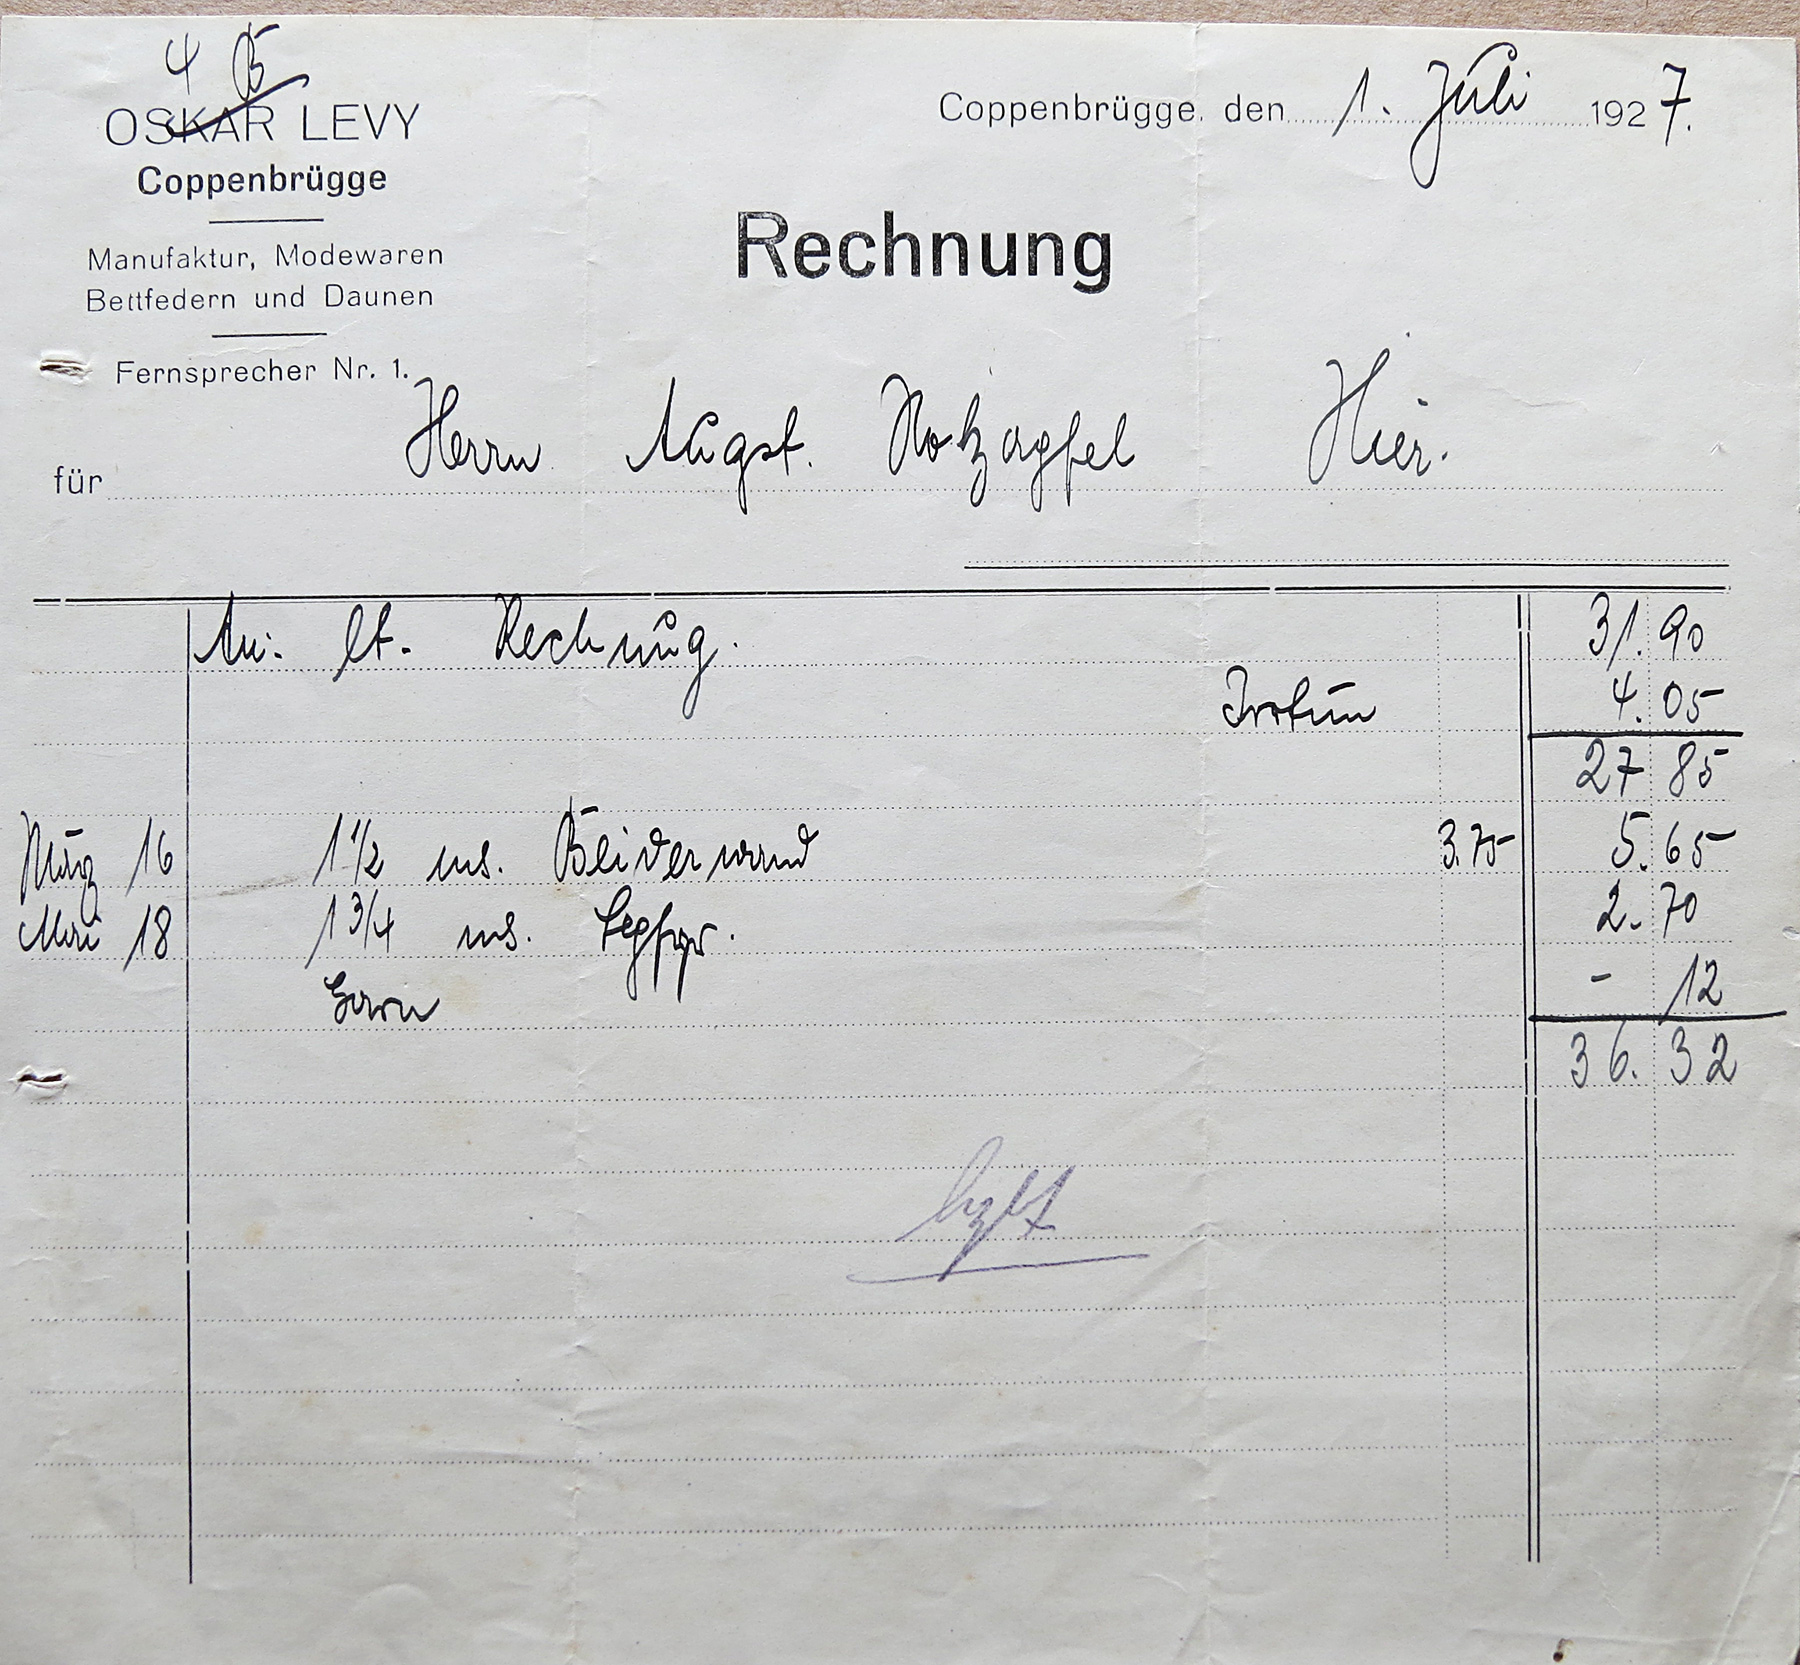 4 B
OSKAR LEVY
Coppenbrügge, den 1. Juli 1927.
Coppenbrügge
Rechnung
Manufaktur, Modewaren
Bettfedern und Daunen
Fernsprecher Nr. 1.
für Herrn Augst. Hier.
An: lt. Rechnung. 31.90
Irrtum 4.05
27 85
März 16 1 1/2 ms. Beiderwand 3.75 5.65
Mai 18 1 3/4 ms. 2.70
Garn - 12
36.32
bzlt